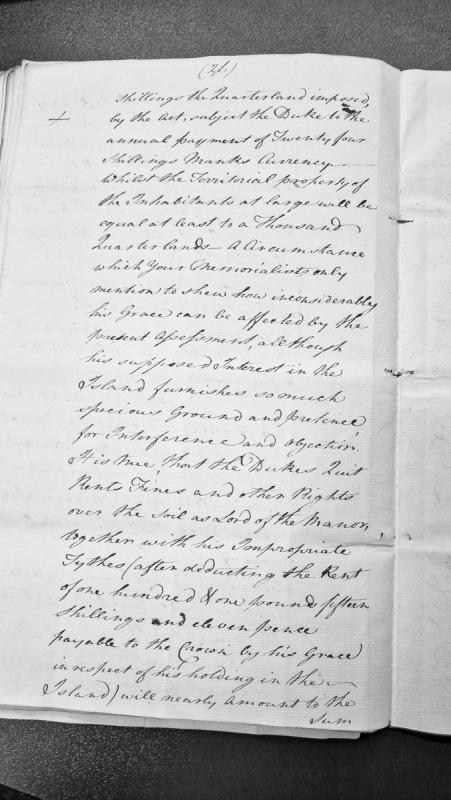 (26)
Shillings the Quarterland imposed,
+ by the Act, subject the Duke to the
annual payment of Twenty four
Shillings Manks Currency.
Whilst the Territorial property of
the Inhabitants at large will be
equal at least to a Thousand
Quarterlands – A Circumstance
which Your Memorialists only
mention to shew how inconsiderably
his Grace can be affected by the
present Assessment, although
his supposed Interest in the
Island furnishes so much
specious Ground and pretence,
for Interference and objection.
It is true, that the Dukes Quit
Rents Fines and other Rights
over the Soil as Lord of the Manor,
together with his Impropriate
Tythes (after deducting the Rent
of one hundred & one pounds fifteen
Shillings and eleven pence
payable to the Crown by his Grace
in respect of his holding in the
Island) will nearly amount to the
Sum